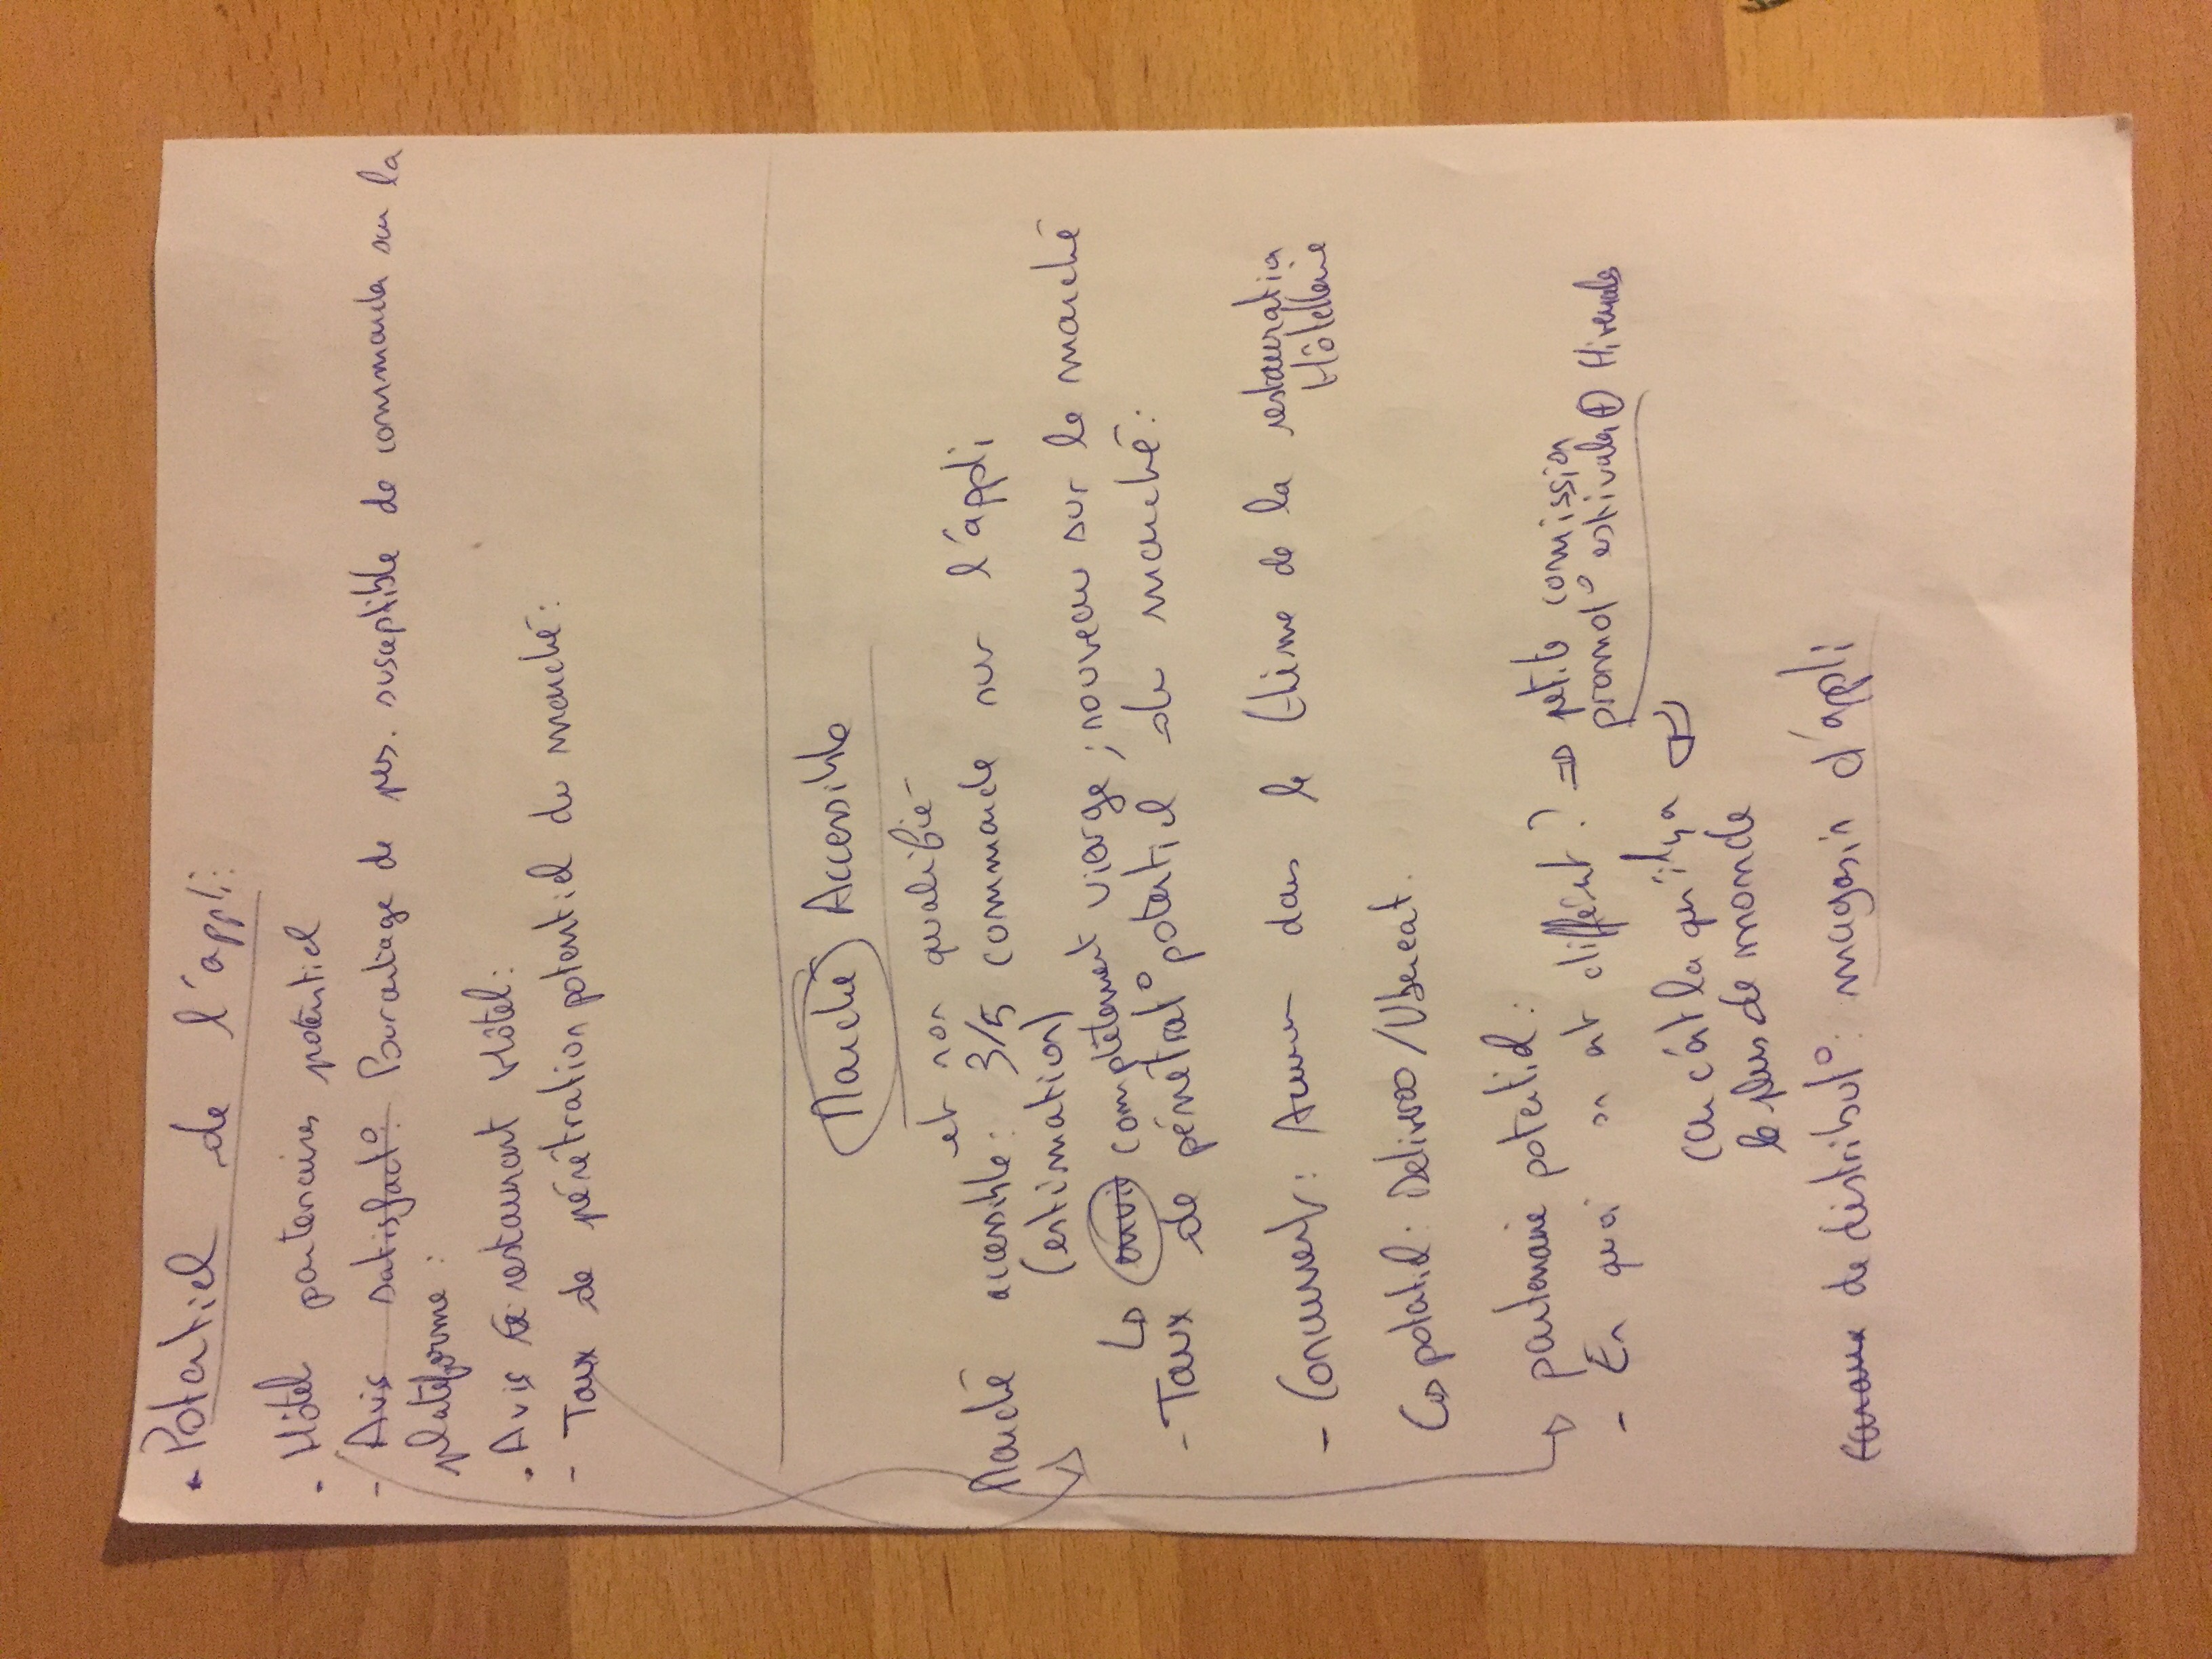 - Potentiel de l'appli:
- Hôtel partenaires potentiel
- Avis satisfact° Pourcentage de pers. susceptible de commander sur la
plateforme :
- Avis restaurant Hôtel:
- Taux de pénétration potentiel du marché:
Marché Accessible
et non qualifié
Marché accessible: 3/5 commande sur l'appli
(estimation)
↳ complètement vierge ; nouveau sur le marché
- Taux de pénétrat° potentiel du marché:
- Concurrent: Aucun dans le thème de la restauration
Hôtellerie
↳ potentiel: Deliveroo/Ubereat.
→ partenaire potentiel:
- En quoi on est différent? ⇒ petite comission
promot° estivale ⊕ Hivernale
car c'est la qu'il y a
le plus de monde
canaux de distribut°: magasin d'appli